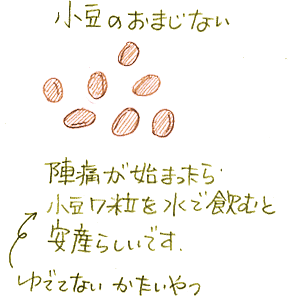 小豆のおまじない
陣痛が始まったら
小豆7粒を水で飲むと
安産らしいです.
ゆでてない かたいやつ